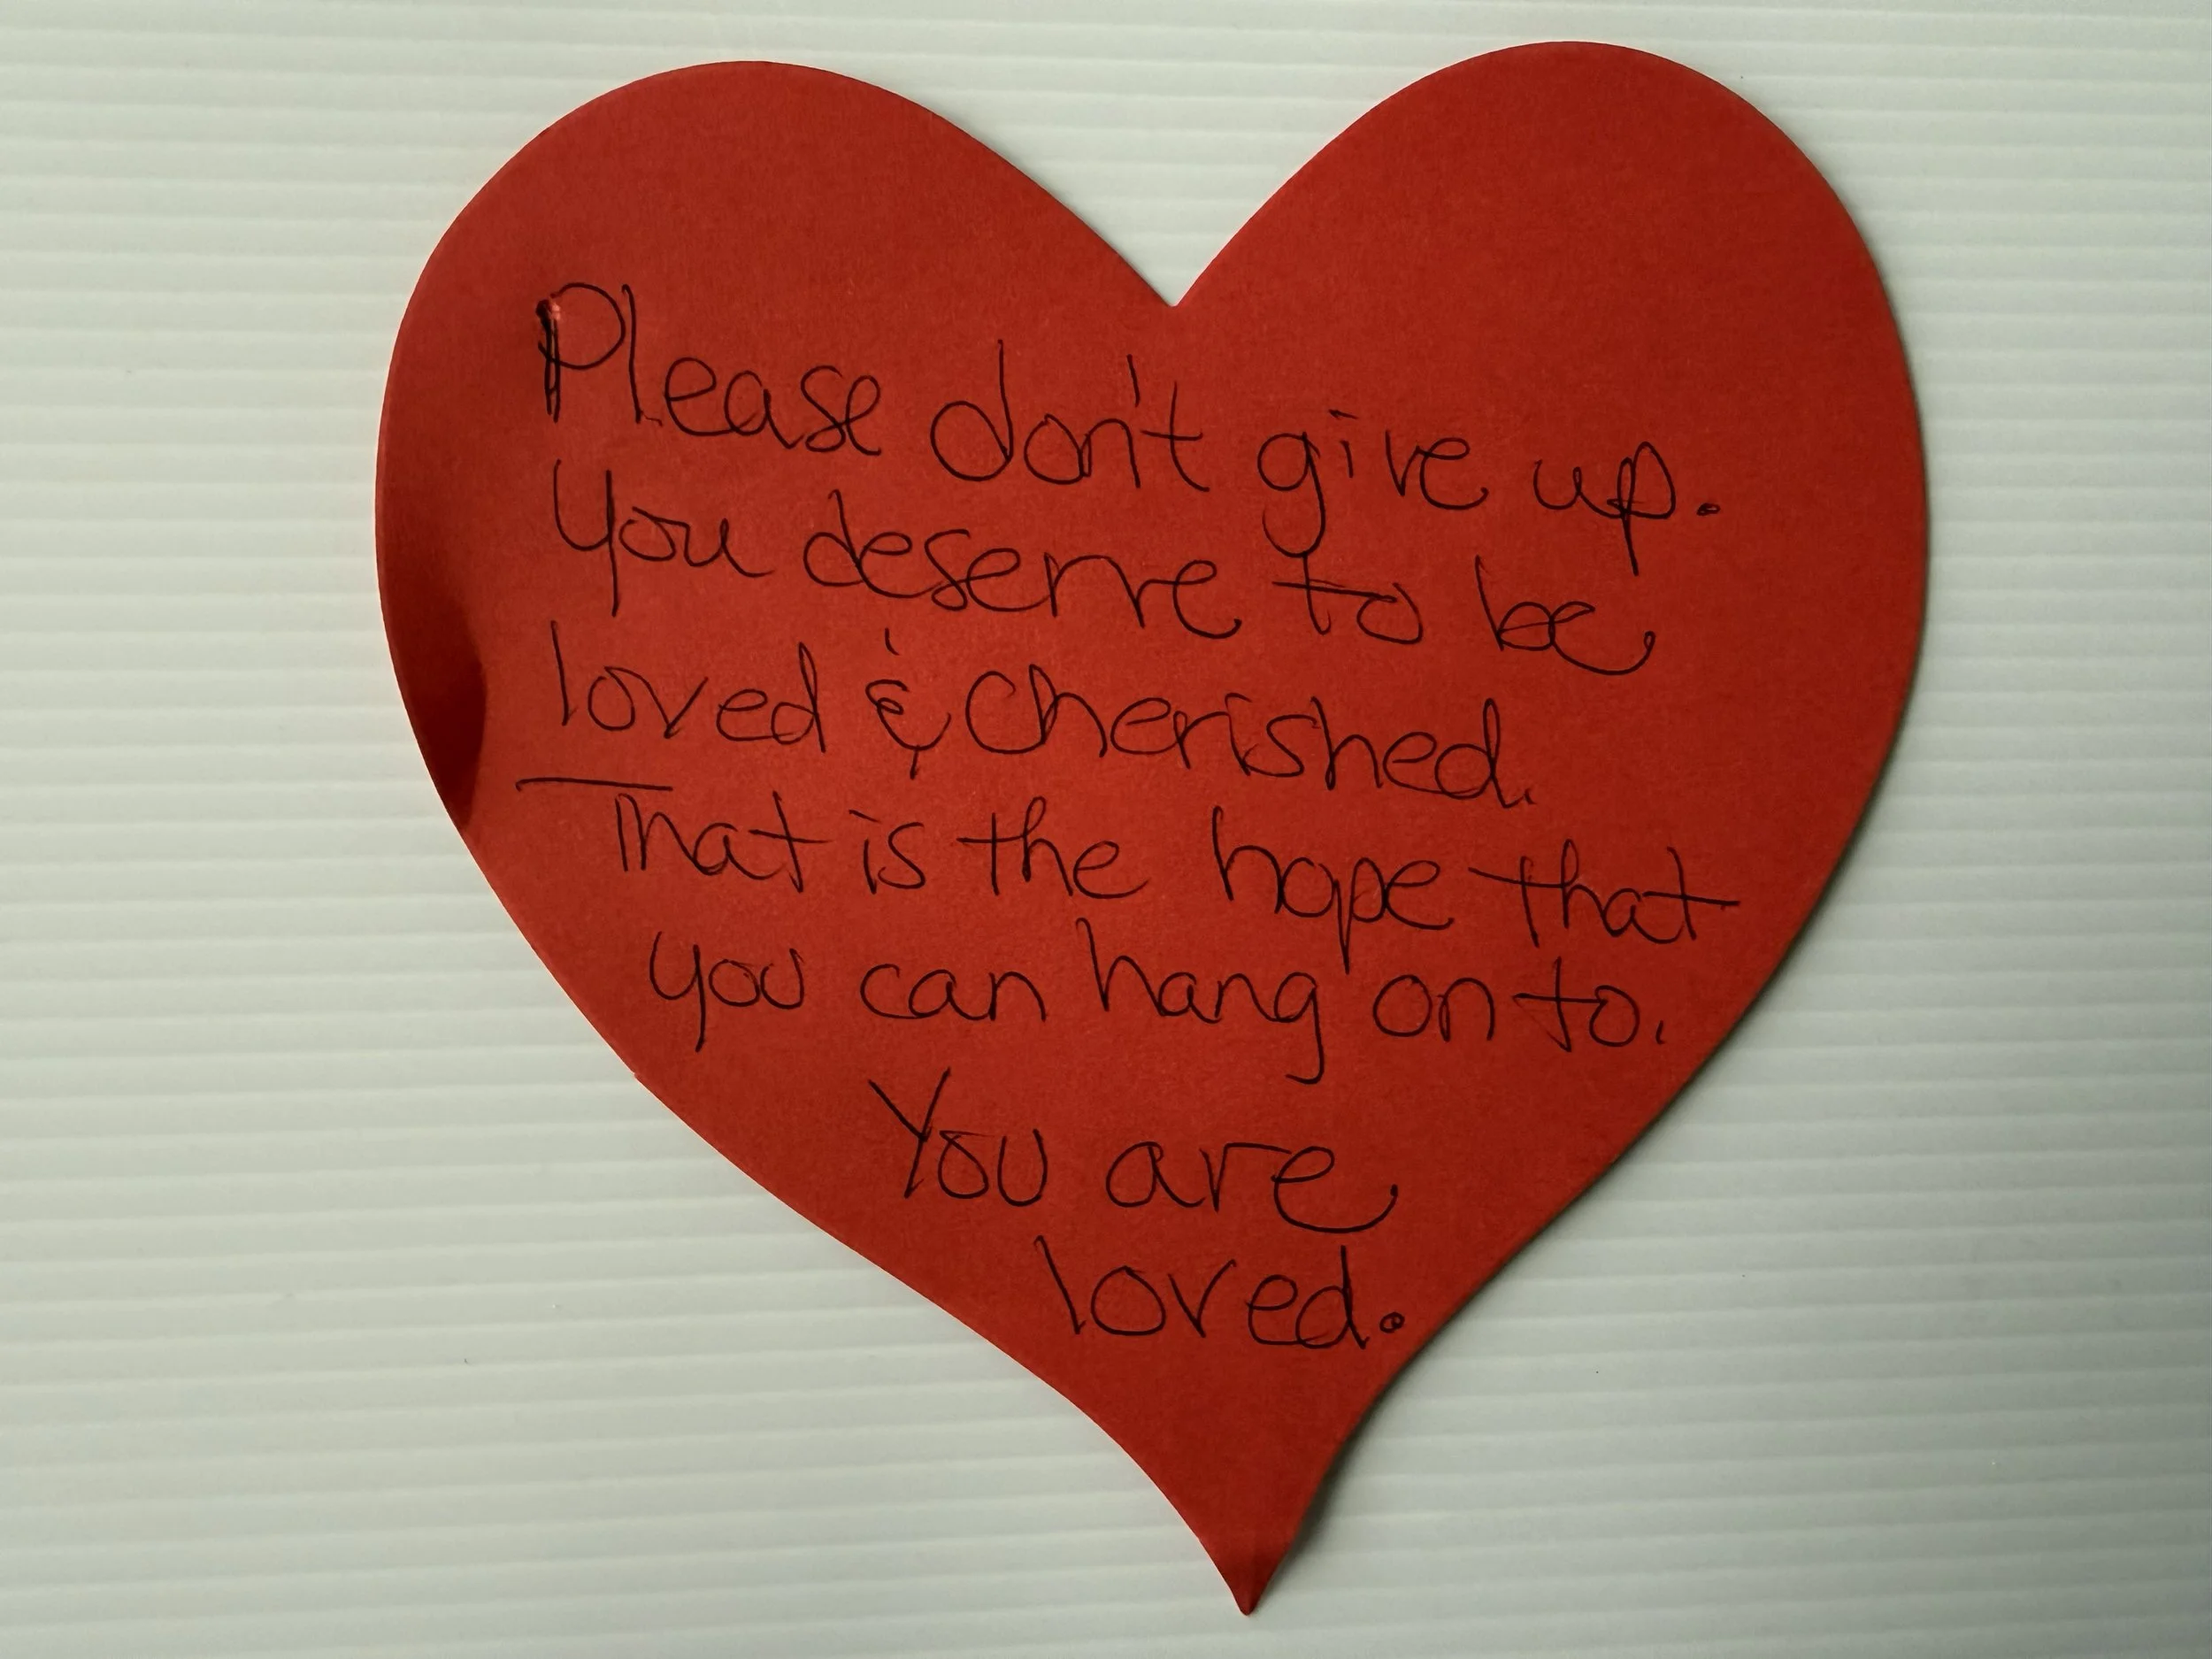 Please don't give up.
You deserve to be
loved & cherished.
That is the hope that
you can hang on to.
You are
loved.